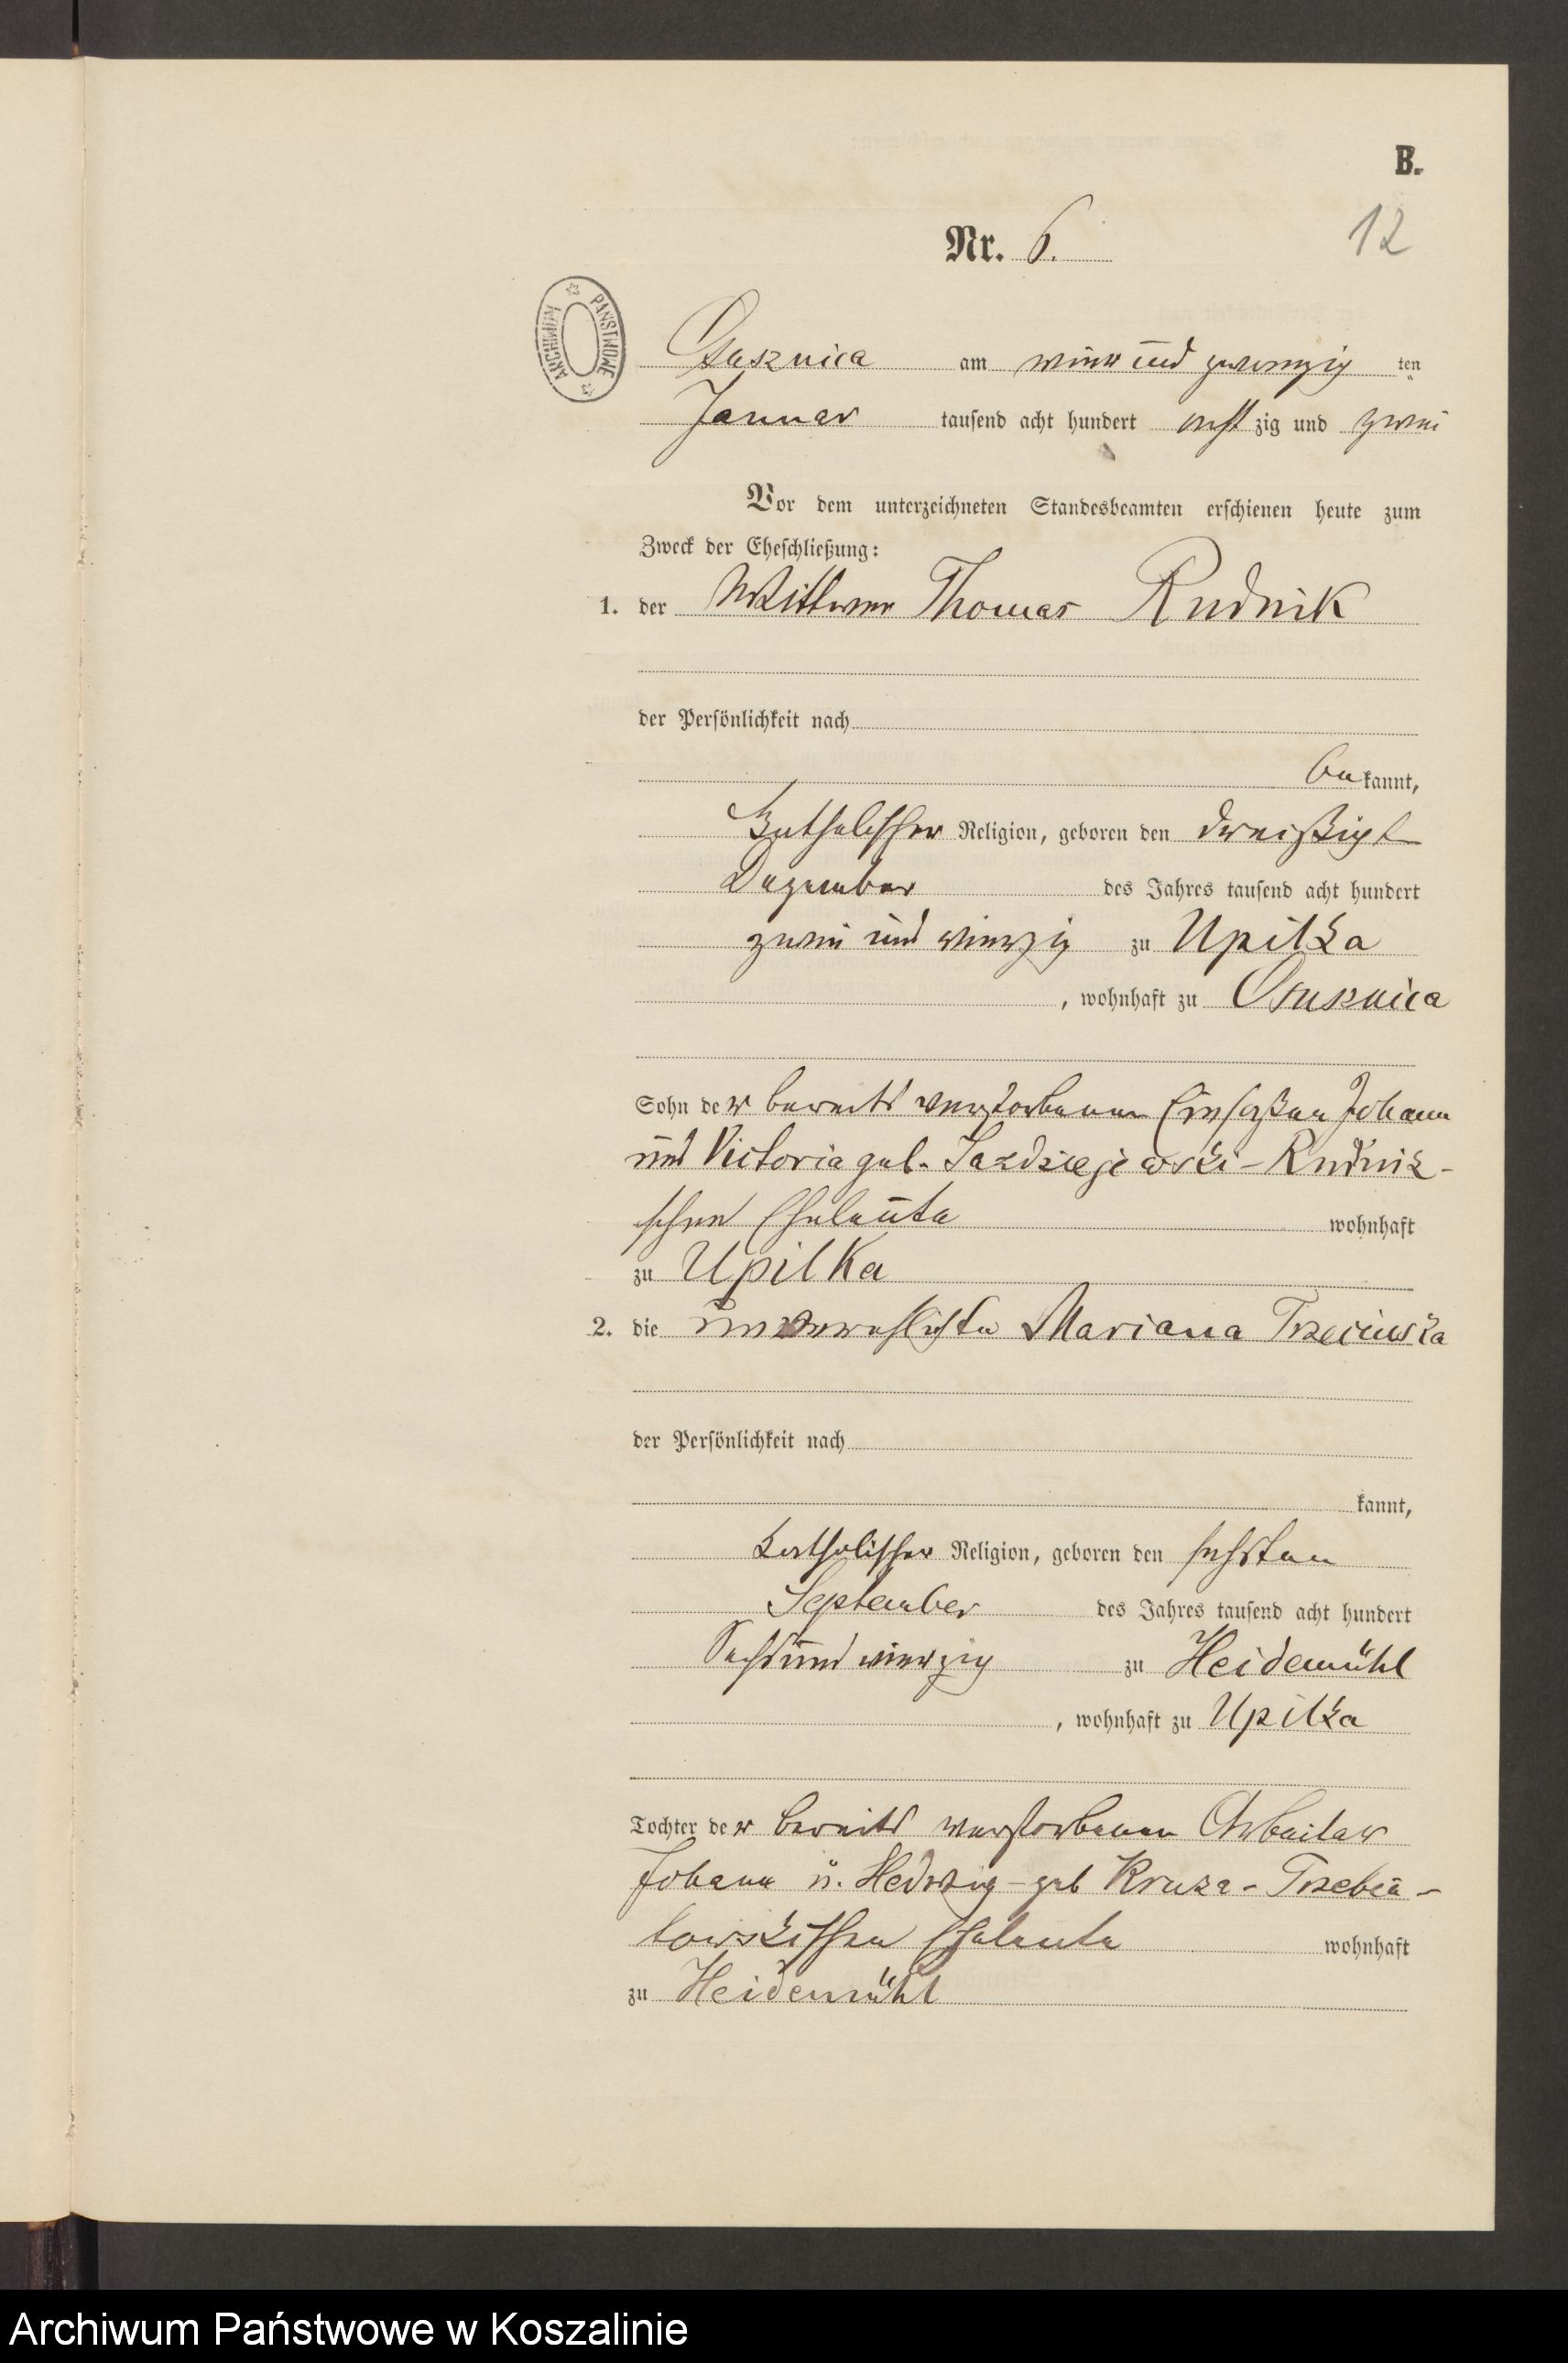 B.
12
Nr. 6.
ARCHIWUM PAŃSTWOWE
Osusznica am vier und zwanzig ten
Januar tausend acht hundert acht zig und zwei
Vor dem unterzeichneten Standesbeamten erschienen heute zum
Zweck der Eheschließung:
1. der Wittwer Thomas Rudnik
der Persönlichkeit nach
be kannt,
Katholischer Religion, geboren den dreißigst
Dezember des Jahres tausend acht hundert
zwei und vierzig zu Upilka
, wohnhaft zu Osusznica
Sohn der bereits verstorbenen Einsaßen Johann
und Victoria geb. -Rudnik-
schen Eheleute wohnhaft
zu Upilka
2. die unverehlichte Mariana
der Persönlichkeit nach
kannt,
katholischer Religion, geboren den sechsten
September des Jahres tausend acht hundert
Sechs und vierzig zu Heidemühl
, wohnhaft zu Upilka
Tochter der bereits verstorbenen Arbeiter
Johann u. Hedwig - geb Kruza - Trzebia-
towskischen Eheleute wohnhaft
zu Heidemühl
Archiwum Państwowe w Koszalinie